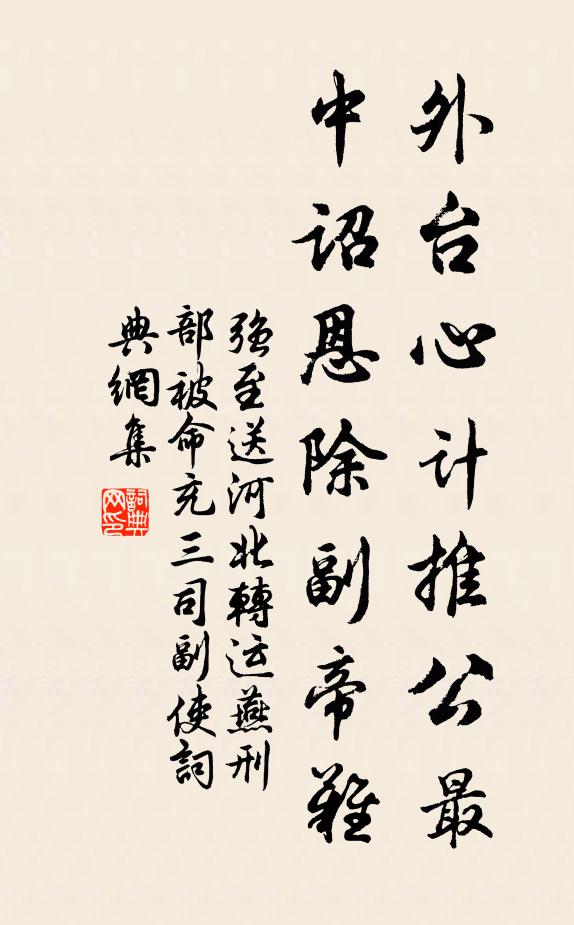 外台心计推公最
中诏恩除副帝難
強至送河北轉运燕刑
部被命充三司副使詞
典網集
詞典网印